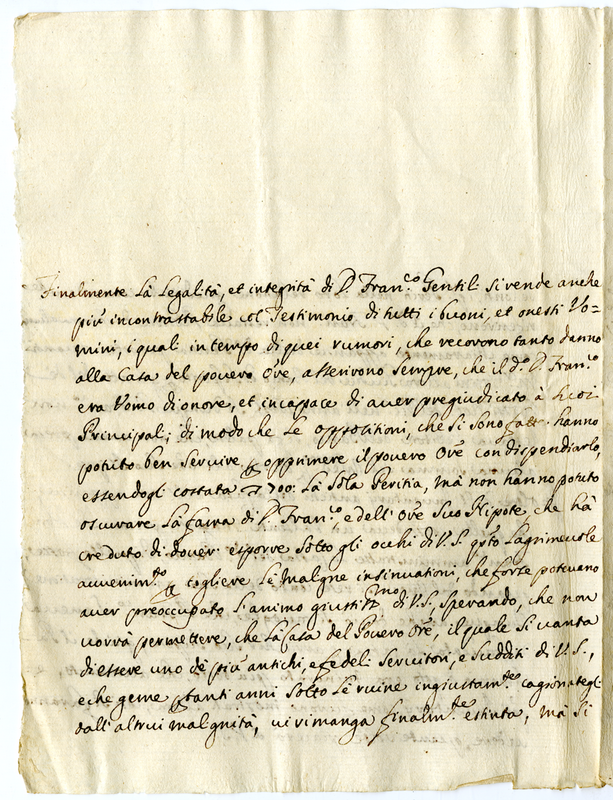 Finalmente la legalità, et integrità di D. Fran.co Gentili si rende anche
più incontrastabile col Testimonio di tutti i buoni, et onesti Vo=
mini, i quali in tempo di quei rumori, che recorono tanto danno
alla Casa del povero Ore, asserivono sempre, che il d.o D. Fran.co
era Vomo di onore, et incapace di aver pregiudicato à suoi
Principali; di modo che le oppositioni, che si sono fatte hanno
potuto ben servire p opprimere il povero Ore con dispendiarlo,
essendogli costata 700: la sola Peritia, mà non hanno potuto
oscurare la fama di D. Fran.co, e dell'Ore suo Nipote, che hà
creduto di dover esporre sotto gli occhi di V.S. q.to lagrimevole
avvenim.to p togliere le maligne insinuationi, che forse potevano
aver preoccupato l'animo giustiss.mo di V.S., sperando, che non
vorrà permettere, che la Casa del Povero Ore, il quale si vanta
di essere uno de più antichi, e fedeli Servitori, e Sudditi di V.S.,
e che geme p tanti anni sotto le ruine ingiustam.te cagionategli
dall'altrui malignità, vi rimanga finalm.te estinta, mà si